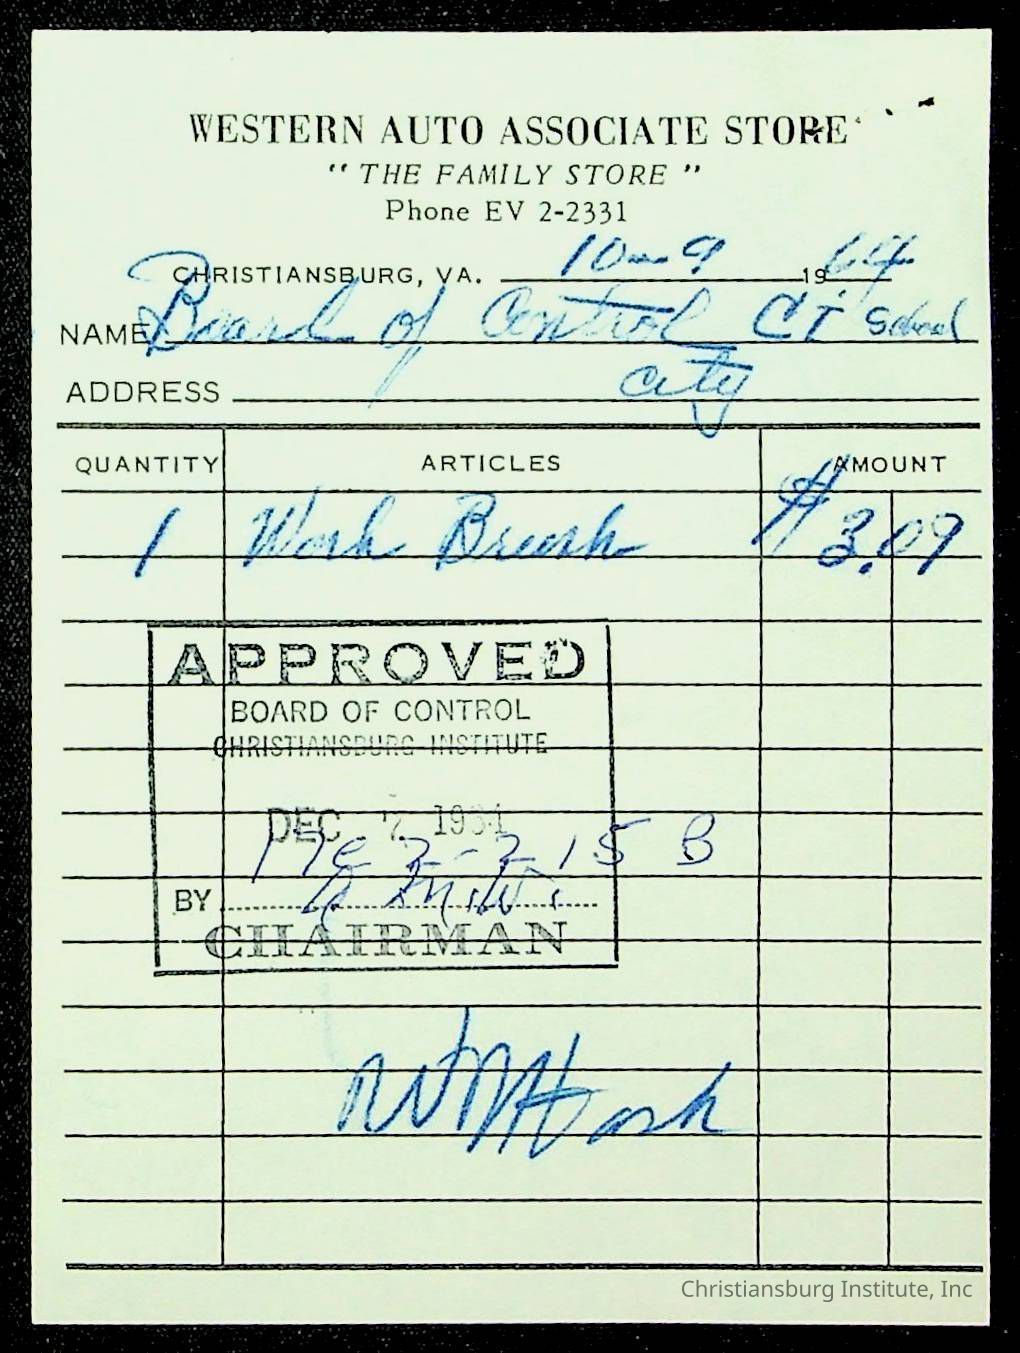 WESTERN AUTO ASSOCIATE STORE
" THE FAMILY STORE "
Phone EV 2-2331
CHRISTIANSBURG, VA. 10-9 1964
NAME Board of Control CI School
ADDRESS city
QUANTITY ARTICLES AMOUNT
1 Wash Brush $3.09
APPROVED
BOARD OF CONTROL
CHRISTIANSBURG INSTITUTE
DEC 7 1964
17e2-215 B
BY
CHAIRMAN
Christiansburg Institute, Inc